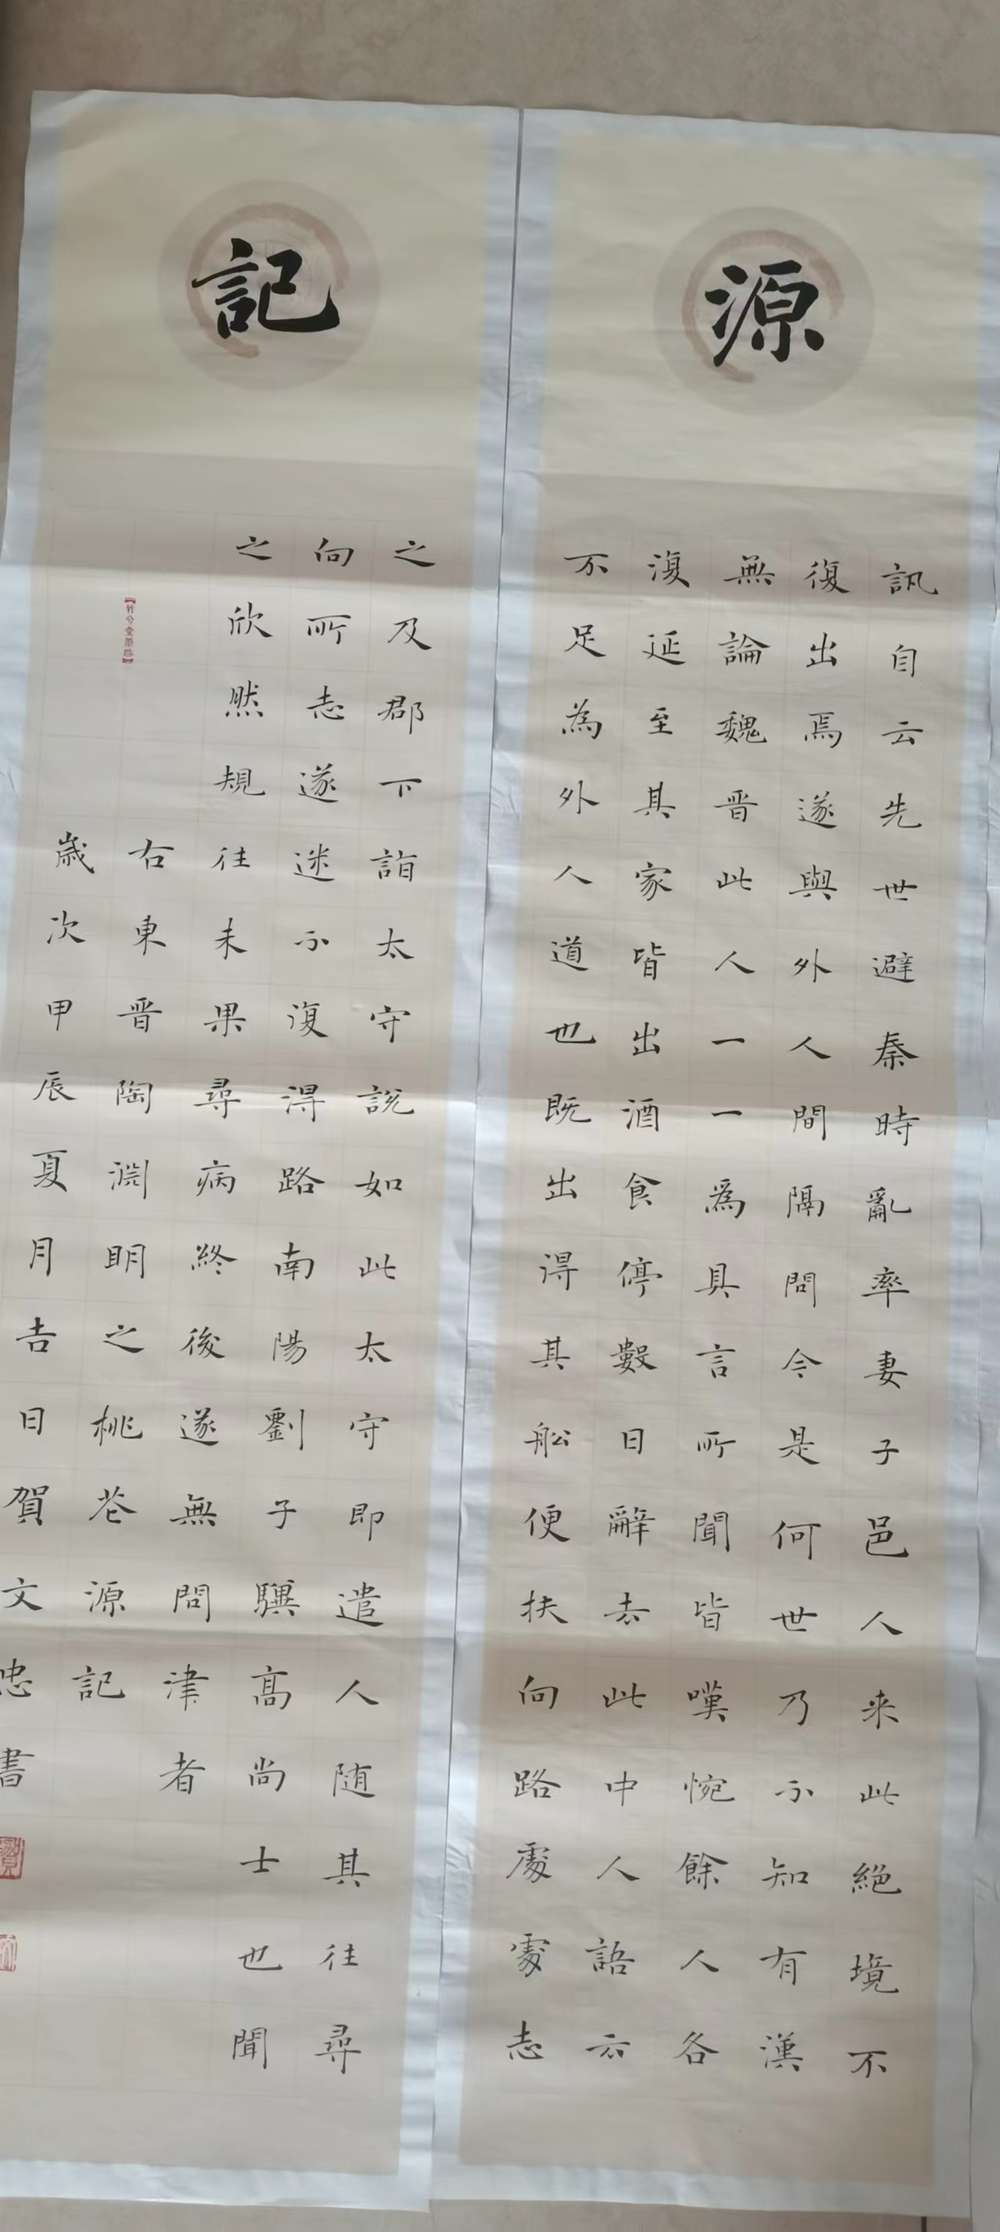 源
訊自云先世避秦時亂率妻子邑人来此絕境不
復出焉遂與外人間隔問今是何世乃不知有漢
無論魏晋此人一一為具言所聞皆嘆惋餘人各
復延至其家皆出酒食停數日辭去此中人語云
不足為外人道也既出得其船便扶向路處處志
記
之及郡下詣太守說如此太守即遣人随其往尋
向所志遂迷不復得路南陽劉子驥高尚士也聞
之欣然規往未果尋病終後遂無問津者
右東晋陶淵明之桃花源記
歲次甲辰夏月吉日賀文忠書